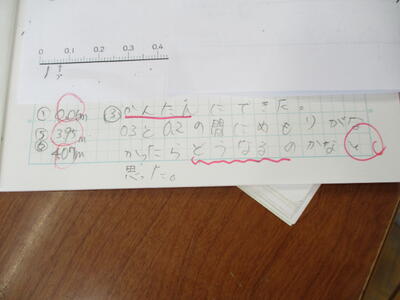 0 0.1 0.2 0.3 0.4
① 0.06m
⑤ 3.95m
⑥ 4.07m
③ かんたんにできた。
0.3と0.2の間にめもりがな
かったらどうなるのかなと
思った。